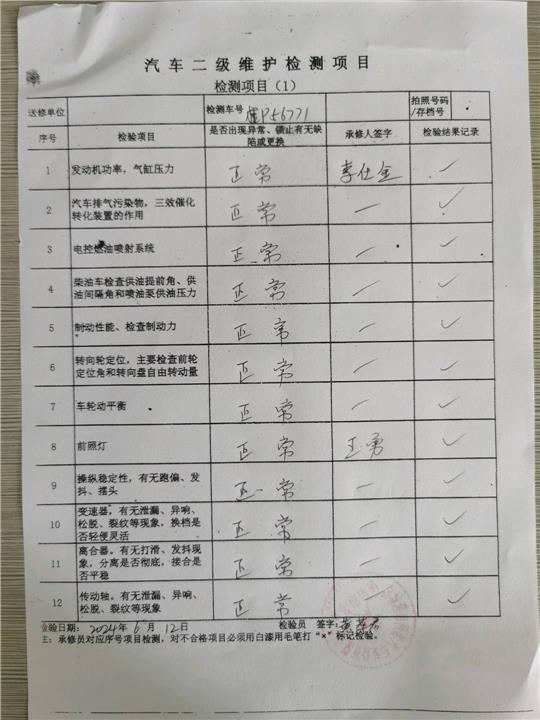 汽车二级维护检测项目
检测项目（1）
送修单位 检测车号 P56771 拍照号码/存档号
序号 检验项目 是否出现异常、锁止有无缺陷或更换 承修人签字 检验结果记录
1 发动机功率，气缸压力 正常 李仕全 ✓
2 汽车排气污染物，三效催化转化装置的作用 正常 — ✓
3 电控燃油喷射系统 正常 — ✓
4 柴油车检查供油提前角、供油间隔角和喷油泵供油压力 正常 — ✓
5 制动性能、检查制动力 正常 — ✓
6 转向轮定位，主要检查前轮定位角和转向盘自由转动量 正常 — ✓
7 车轮动平衡 正常 — ✓
8 前照灯 正常 王勇 ✓
9 操纵稳定性，有无跑偏、发抖、摆头 正常 — ✓
10 变速器，有无泄漏、异响、松脱、裂纹等现象，换档是否轻便灵活 正常 — ✓
11 离合器。有无打滑、发抖现象，分离是否彻底，接合是否平稳 正常 — ✓
12 传动轴。有无泄漏、异响、松脱、裂纹等现象 正常 — ✓
验日期：2024年6月12日 检验员 签字：
主：承修员对应序号项目检测，对不合格项目必须用白漆用毛笔打“×”标记检验。